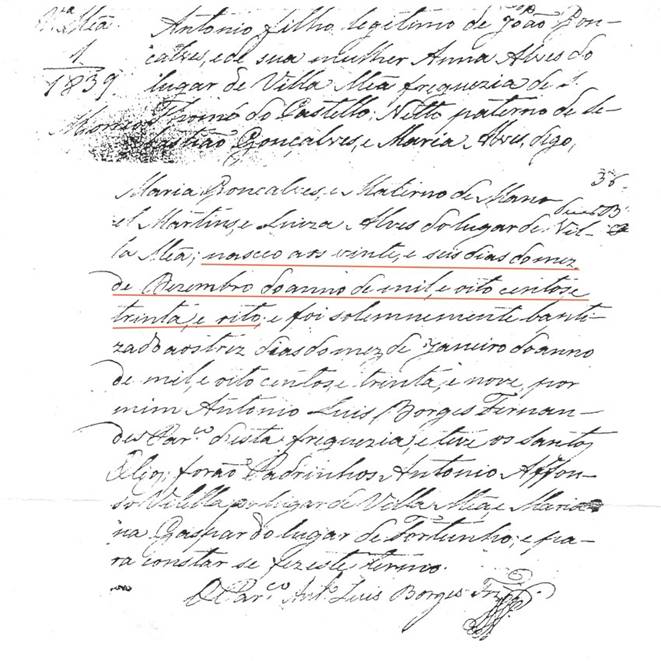 Vª Meã
1
1839
Morreo
Antonio filho legitimo de João Gon-
calves, e de sua mulher Anna Alves do
lugar de Villa Meã freguezia de S.
Thomé do Castello; Netto paterno de Se-
bastião Gonçalves, e Maria Alves, digo,
36
Maria Goncalves, e Materno de Mano-
el Martins, e Luiza Alves do lugar de Vil-
la Meã; nasceo aos vinte, e seis dias do mez
de Dezembro do anno de mil, e oito centos, e
trinta, e oito, e foi solemnemente bauti-
zado aos triz dias do mez de Janeiro do anno
de mil, e oito centos, e trinta, e nove, por
mim Antonio Luis Borges Fernan-
des Parº desta freguezia, e teve os santos
Olios; forão Padrinhos Antonio Affon-
so Vilella, do lugar de Villa Meã, e Maria-
na Gaspar do lugar de Fortunho; e pa-
ra constar se fez este termo.
O Parº Antº Luis Borges Frz